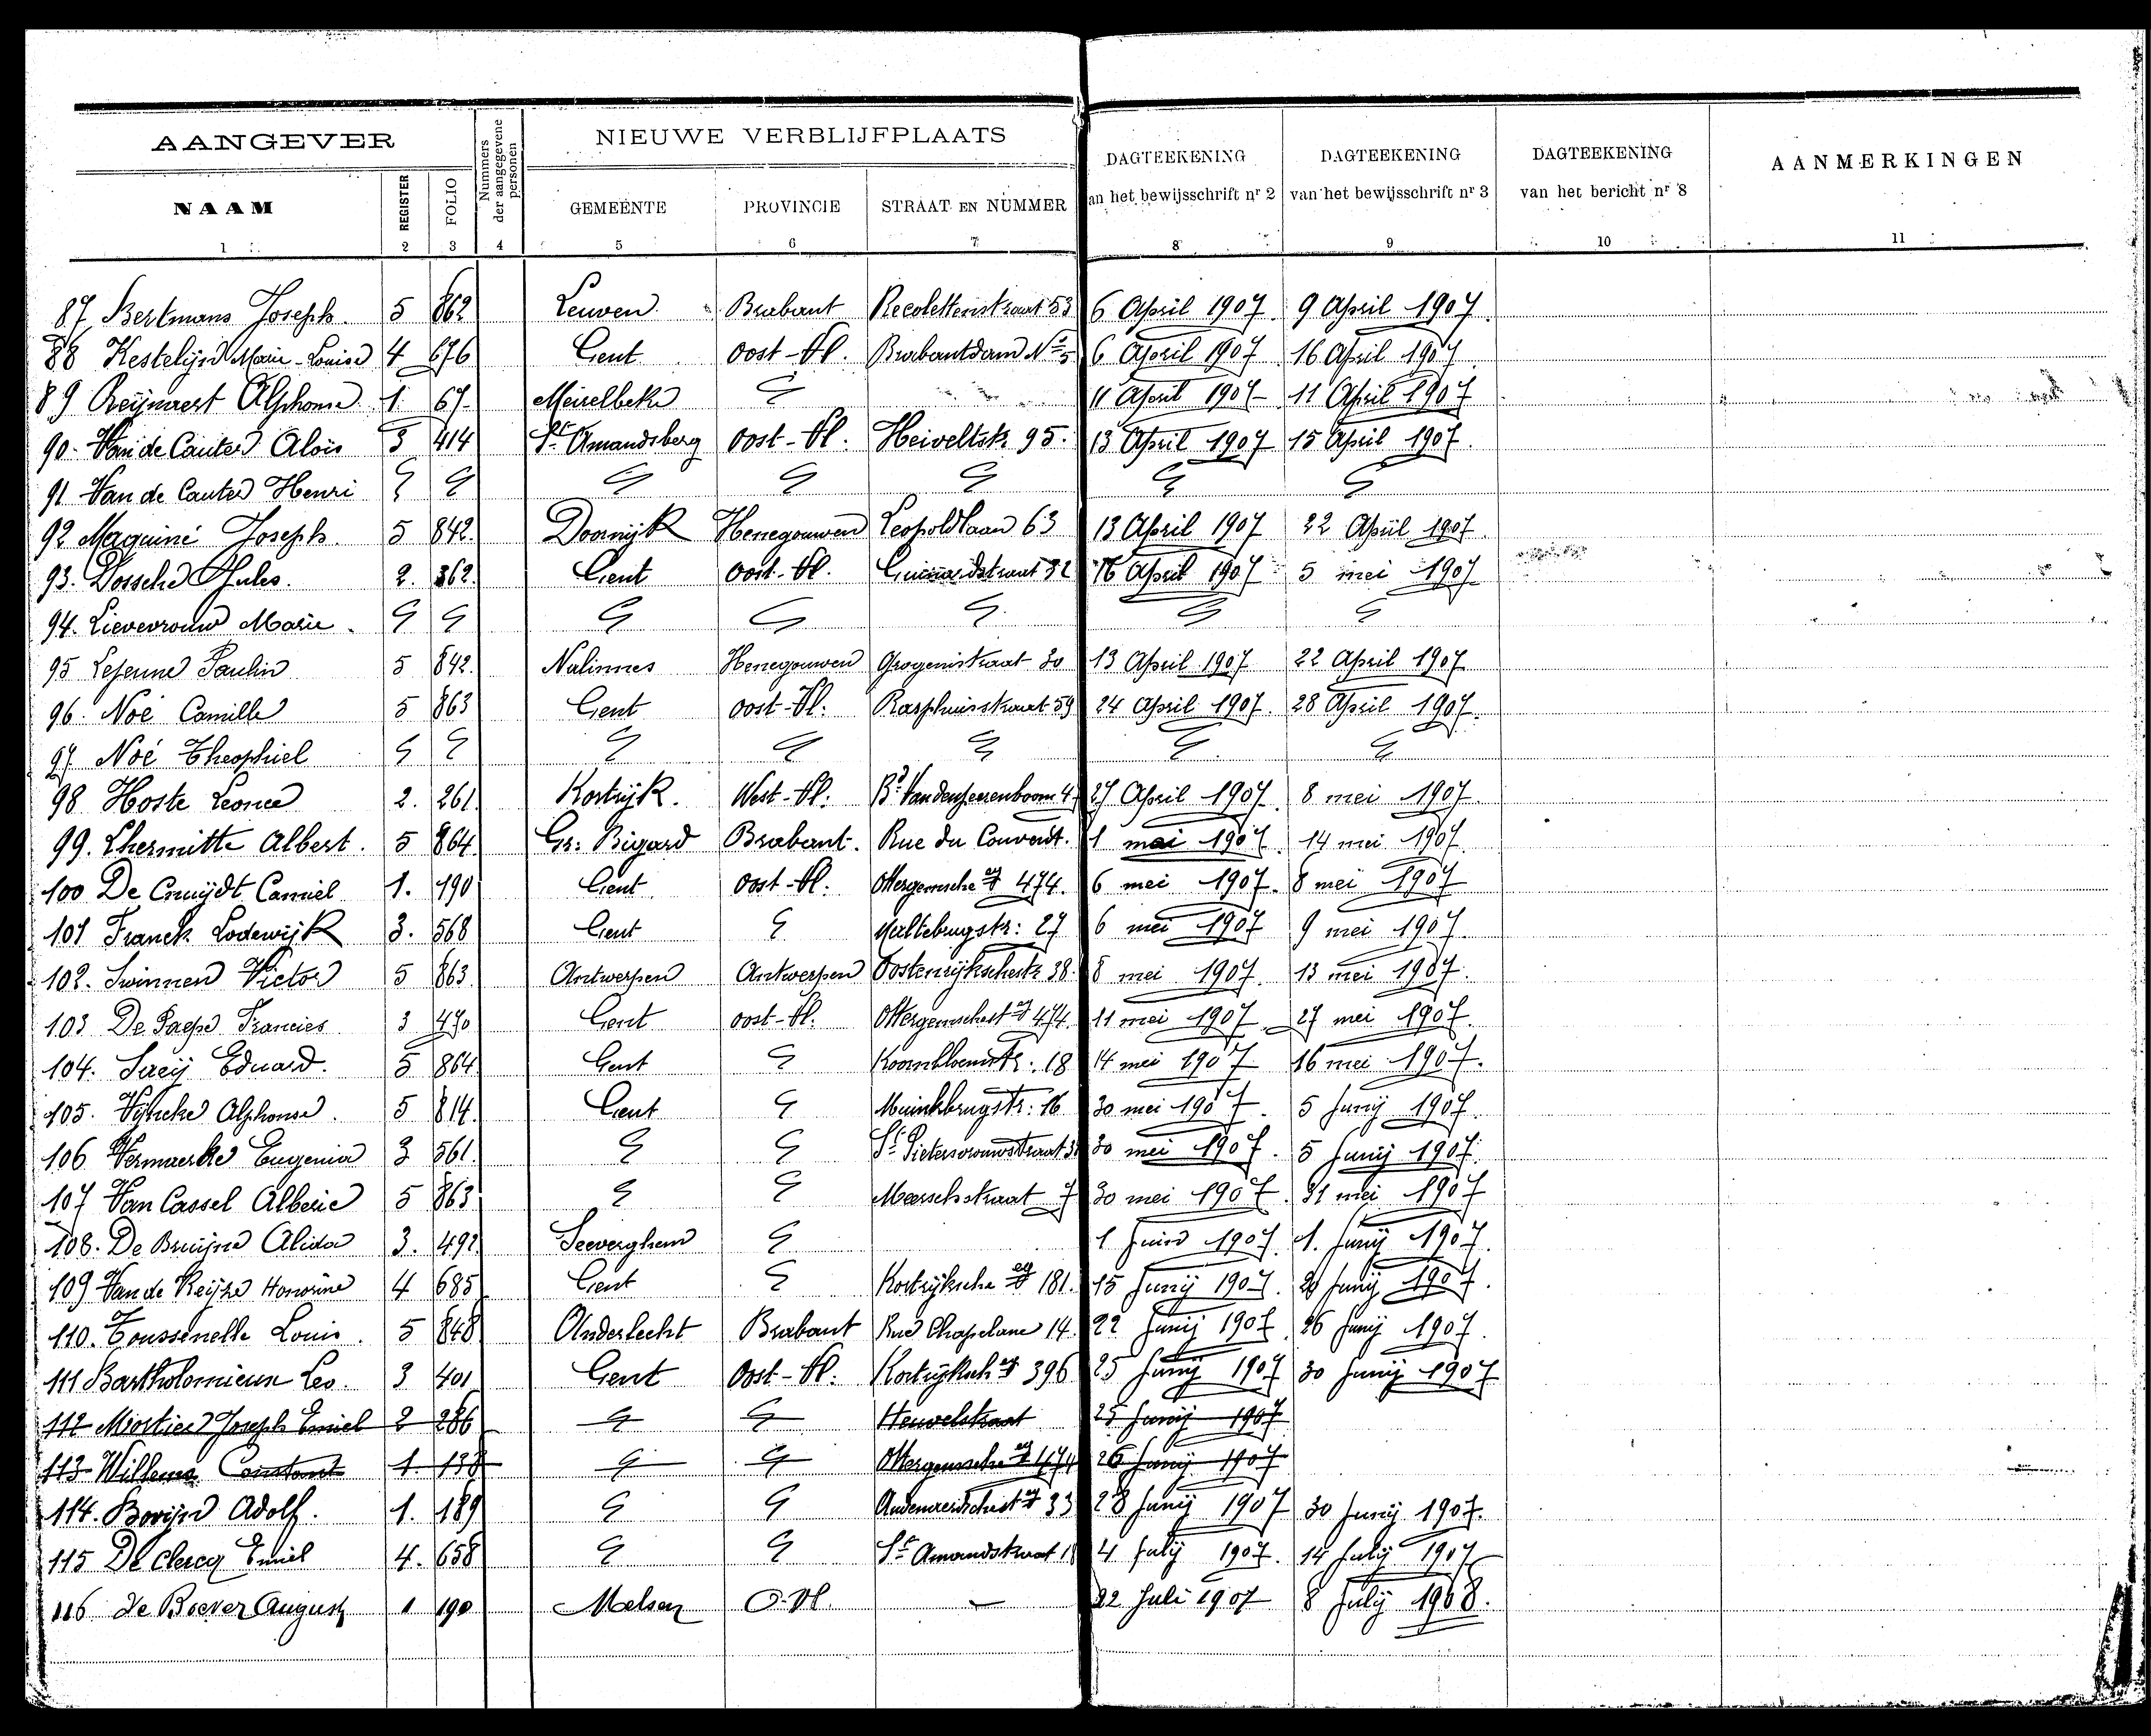 AANGEVER | Nummers der aangegevene personen | NIEUWE VERBLIJFPLAATS | DAGTEEKENING van het bewijsschrift nr 2 | DAGTEEKENING van het bewijsschrift nr 3 | DAGTEEKENING van het bericht nr 8 | AANMERKINGEN
NAAM | REGISTER | FOLIO | GEMEENTE | PROVINCIE | STRAAT EN NUMMER
1 2 3 4 5 6 7 8 9 10 11
87 Bertmans Joseph 5 862 Leuven Brabant Recolettenstraat 53 6 April 1907 9 April 1907
88 Kestelijn Marie-Louise 4 676 Gent Oost-Vl. Brabantdam No 5 6 April 1907 16 April 1907
89 Reijnaert Alphonse 1 67 Meirelbeke " 11 April 1907 11 April 1907
90. Van de Cauter Aloïs 3 414 St Amandsberg Oost-Vl. Heiveltstr. 95. 13 April 1907 15 April 1907
91 Van de Cauter Henri " " " " " " "
92 Maquiné Joseph 5 842 Doornijk Henegouwen Leopoldlaan 63 13 April 1907 22 April 1907
93. Dossche Jules. 2. 362 Gent Oost-Vl. Guinardstraat 32 16 April 1907 5 mei 1907
94. Lievevrouw Marie " " " " " " "
95 Lejeune Paulin 5 842 Nalinnes Henegouwen 30 13 April 1907 22 April 1907
96. Noé Camille 5 863 Gent Oost-Vl. Rasphuisstraat 59 24 April 1907 28 April 1907
97 Noé Theophiel " " " " " " "
98 Hoste Leonce 2. 261 Kortrijk. West-Vl. Bd Vandenpeerenboom 4 27 April 1907 8 mei 1907
99. Lhermitte Albert. 5 864 Gr: Bigard Brabant. Rue du Couvent. 1 mai 1907 14 mei 1907
100 De Cruijdt Camiel 1. 190 Gent Oost-Vl. Ottergemsche stg 474. 6 mei 1907. 8 mei 1907
101 Franck Lodewijk 3. 568 Gent " Maltebrugstr: 27 6 mei 1907 9 mei 1907.
102. Swinnen Victor 5 863 Antwerpen Antwerpen Oostenrijkschestr 38. 8 mei 1907. 13 mei 1907.
103 De Paepe Francies 3 470 Gent Oost-Vl. Ottergemschest stg 474. 11 mei 1907 27 mei 1907.
104. Saey Eduard. 5 864 Gent " Koornbloemstr. 18 14 mei 1907 16 mei 1907.
105. Vijncke Alphonse. 5 814 Gent " Muinkbrugstr: 16 30 mei 1907. 5 Junij 1907.
106 Vermaerke Eugenia 3 561 " " St Pietersvrouwstraat 30 mei 1907. 5 Junij 1907.
107 Van Cassel Alberic 5 863 " " Meerschstraat 7 30 mei 1907. 31 mei 1907
108. De Bruijne Alida 3. 492 Seeverghem " 1 Juin 1907. 1. Junij 1907.
109 Van de Keijre Honorine 4 685 Gent " Kortrijksche stg 181. 15 Junij 1907. 20 Junij 1907.
110. Toussenelle Louis. 5 848 Anderlecht Brabant Rue Chapelane 14. 22 Junij 1907. 26 Junij 1907.
111 Bartholomieux Leo. 3 401 Gent Oost-Vl. Kortrijksch stg 396 25 Junij 1907 30 Junij 1907
112 Mortier Joseph Emiel 2 286 " " Heuvelstraat 25 Junij 1907
113 Willems Constant 1. 138 " " Ottergemsche stg 474 26 Junij 1907
114. Borijn Adolf. 1. 189 " " stg 33 28 Junij 1907 30 Junij 1907.
115 De Clercq Emiel 4. 658 " " St Amandstraat 4 July 1907. 14 July 1907
116 de Boever August 1 190 Melsen O. Vl. — 22 Juli 1907 8 July 1908.